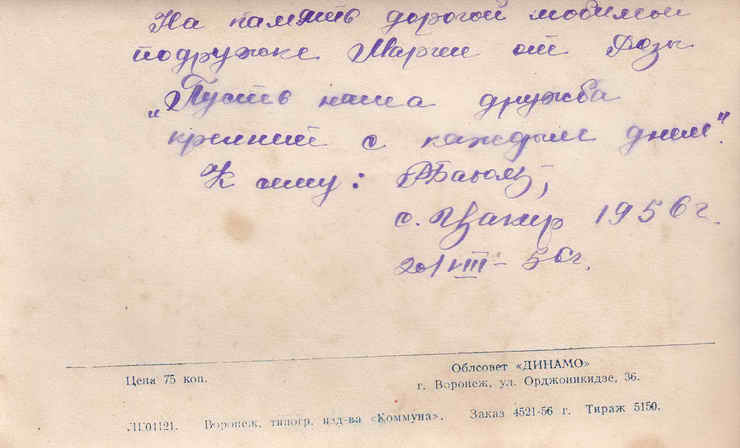 На память дорогой любимой
подружке Марии от Розы
„Пусть наша дружба
крепний с каждым днем".
К сему:
с. Цакир 1956 г.
20/VIII – 56 г.
Цена 75 коп.
Облсовет «ДИНАМО»
г. Воронеж, ул. Орджоникидзе, 36.
ЛЕ01121. Воронеж, типогр. изд-ва «Коммуна». Заказ 4521-56 г. Тираж 5150.